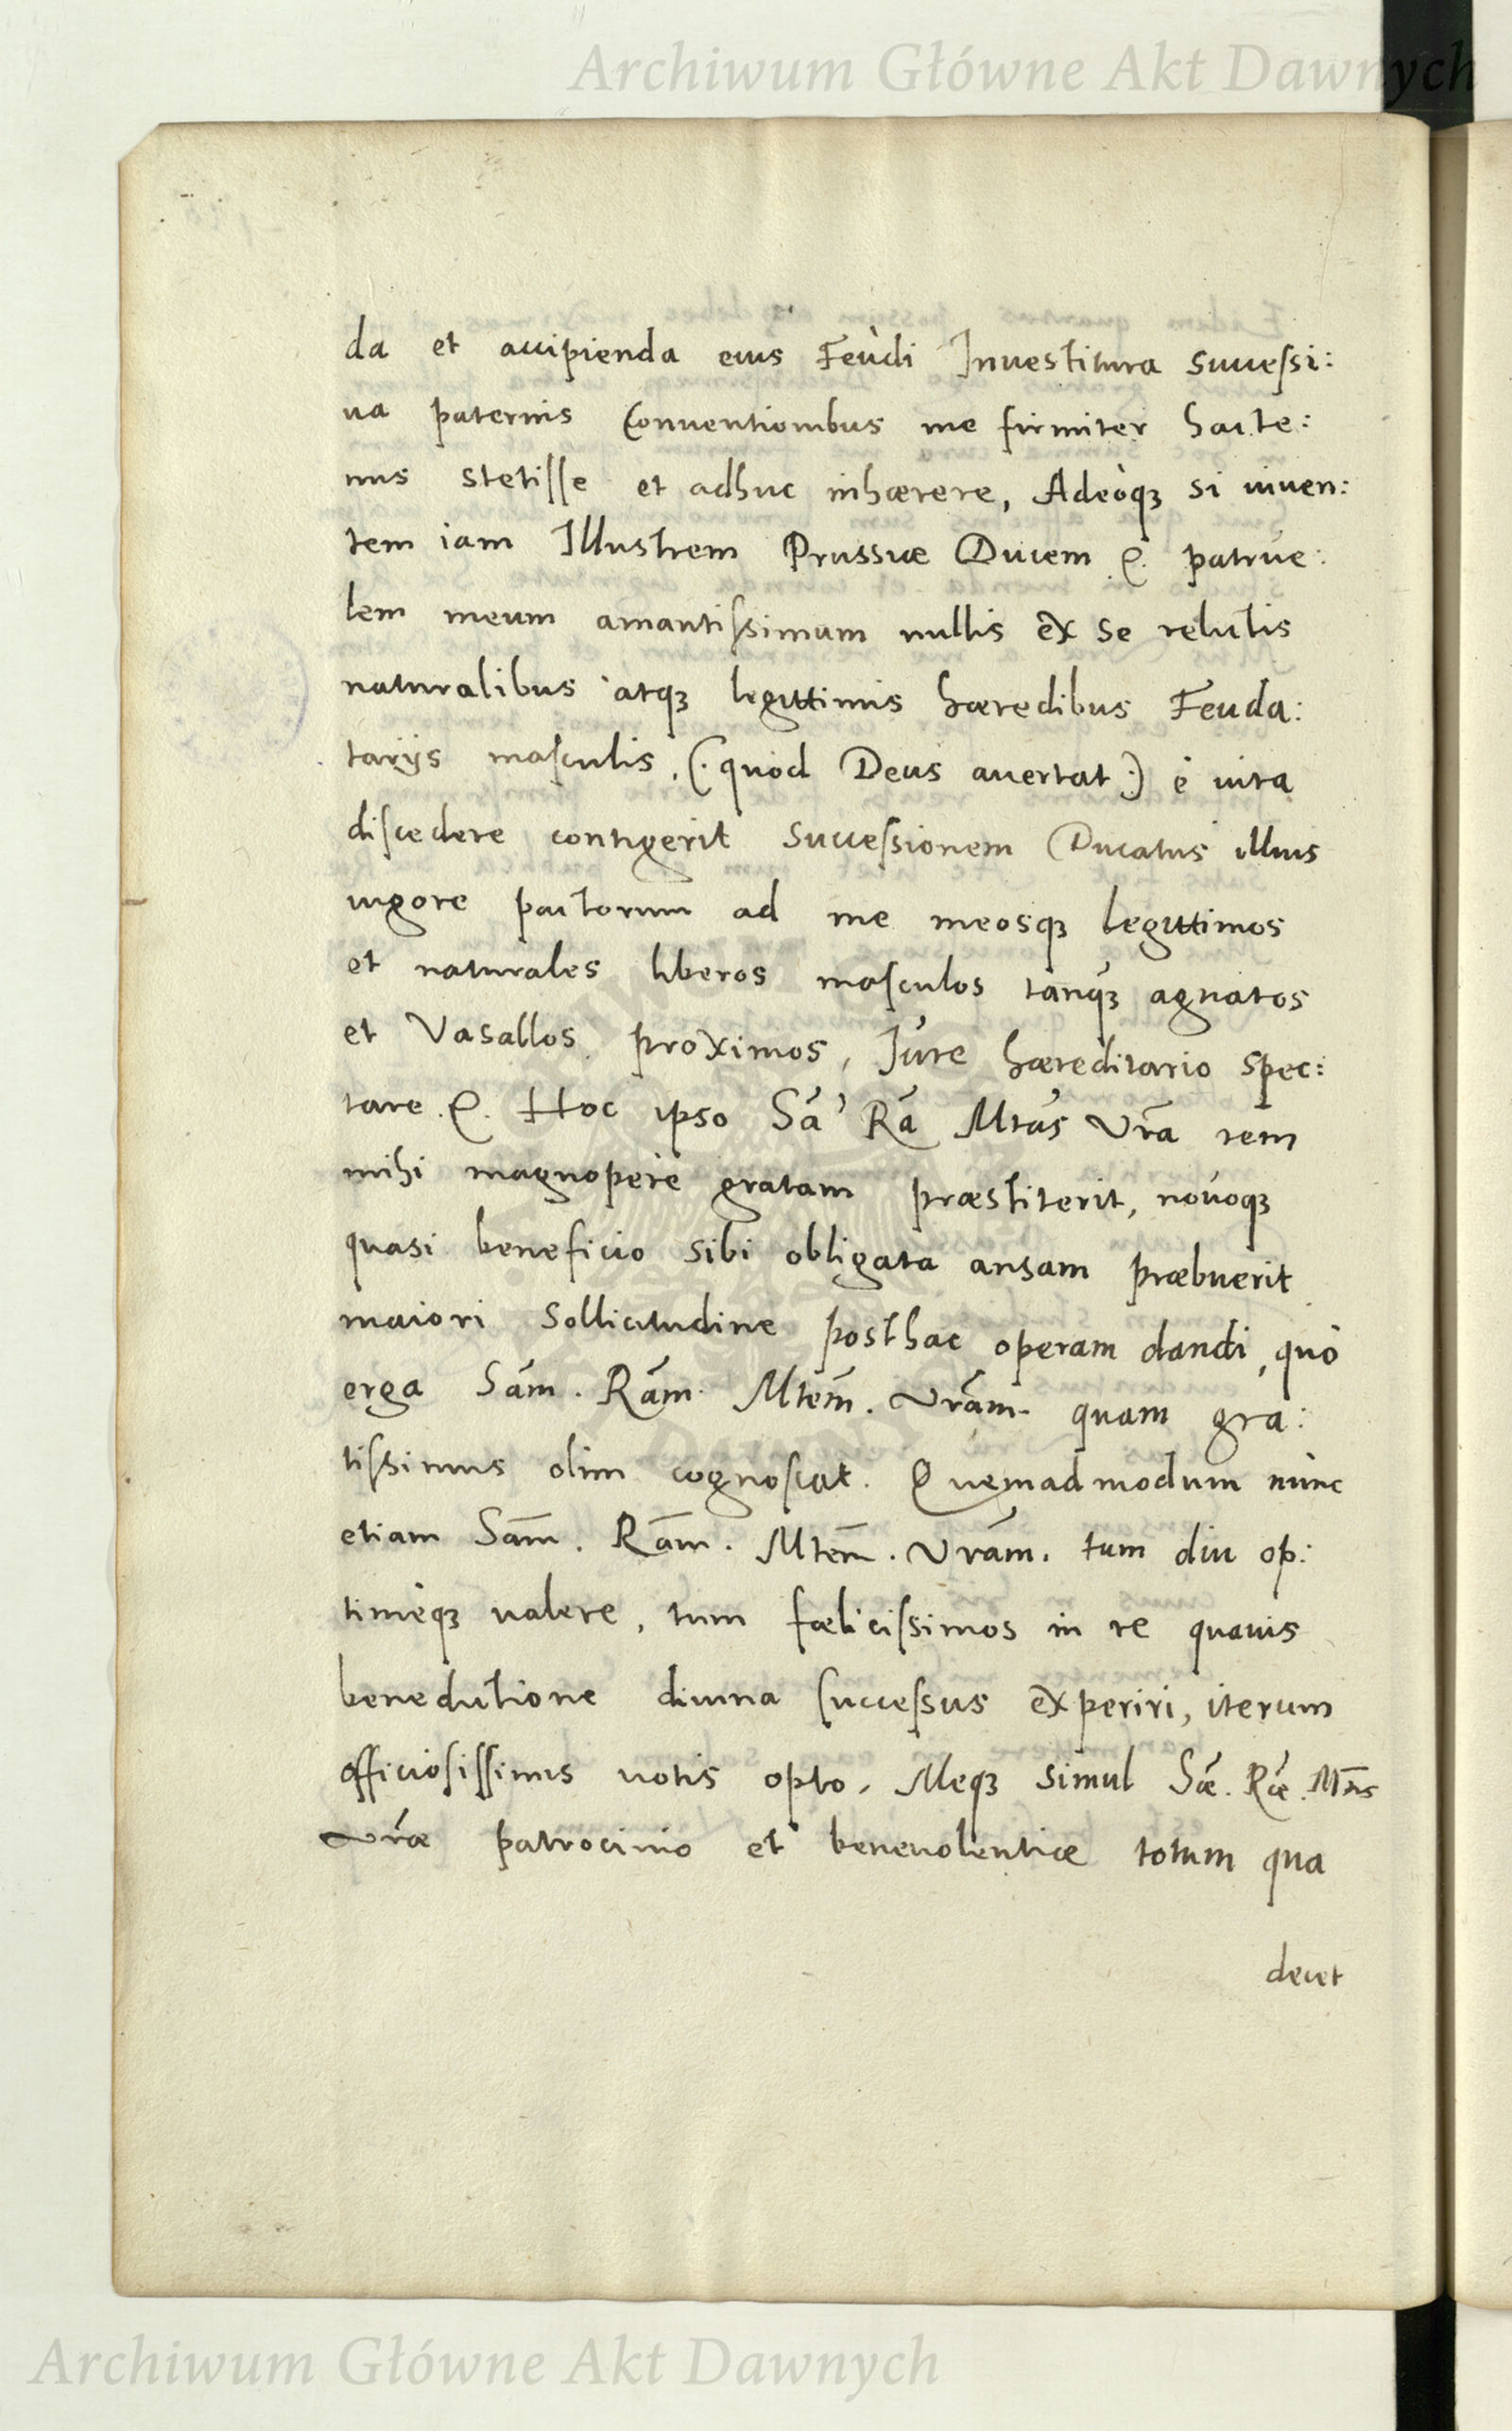 Archiwum Główne Akt Dawnych
da et accipienda eius Feùdi Inuestitura successi:
ua paternis Conuentionibus me firmiter hacte:
nus stetisse et adhuc inhærere, Adeòqꝫ si viuen:
tem iam Illustrem Prussiæ Ducem &. patrue:
lem meum amantissimum nullis ex se relictis
naturalibus atqꝫ legittimis hæredibus Feuda:
tarijs masculis, (: quod Deus auertat :) è vita
discedere contigerit Successionem Ducatus illius
vigore pactorum ad me meosqꝫ legittimos
et naturales liberos masculos tanqꝫ agnatos
et Vasallos proximos, Iùre hæreditario spec:
tare &. Hoc ipso Sã Rã Mtas Vrã rem
mihi magnopere gratam præstiterit, nouoqꝫ
quasi beneficio sibi obligata ansam præbuerit
maiori sollicitudine posthac operam dandi, quò
erga Sãm. Rãm. Mtem̃. Vrãm. quam gra:
tissimus olim cognoscat. Quemadmodum nunc
etiam Sãm. Rãm. Mtem̃. Vrãm. tum diu op:
timèqꝫ valere, tum fœlicissimos in re quauis
benedictione diuina successus experiri, iterum
officiosissimis votis opto. Meqꝫ simul Sæ̃. Ræ̃. Mtis
Vræ̃ patrocinio et beneuolentiæ totum qua
decet
Archiwum Główne Akt Dawnych